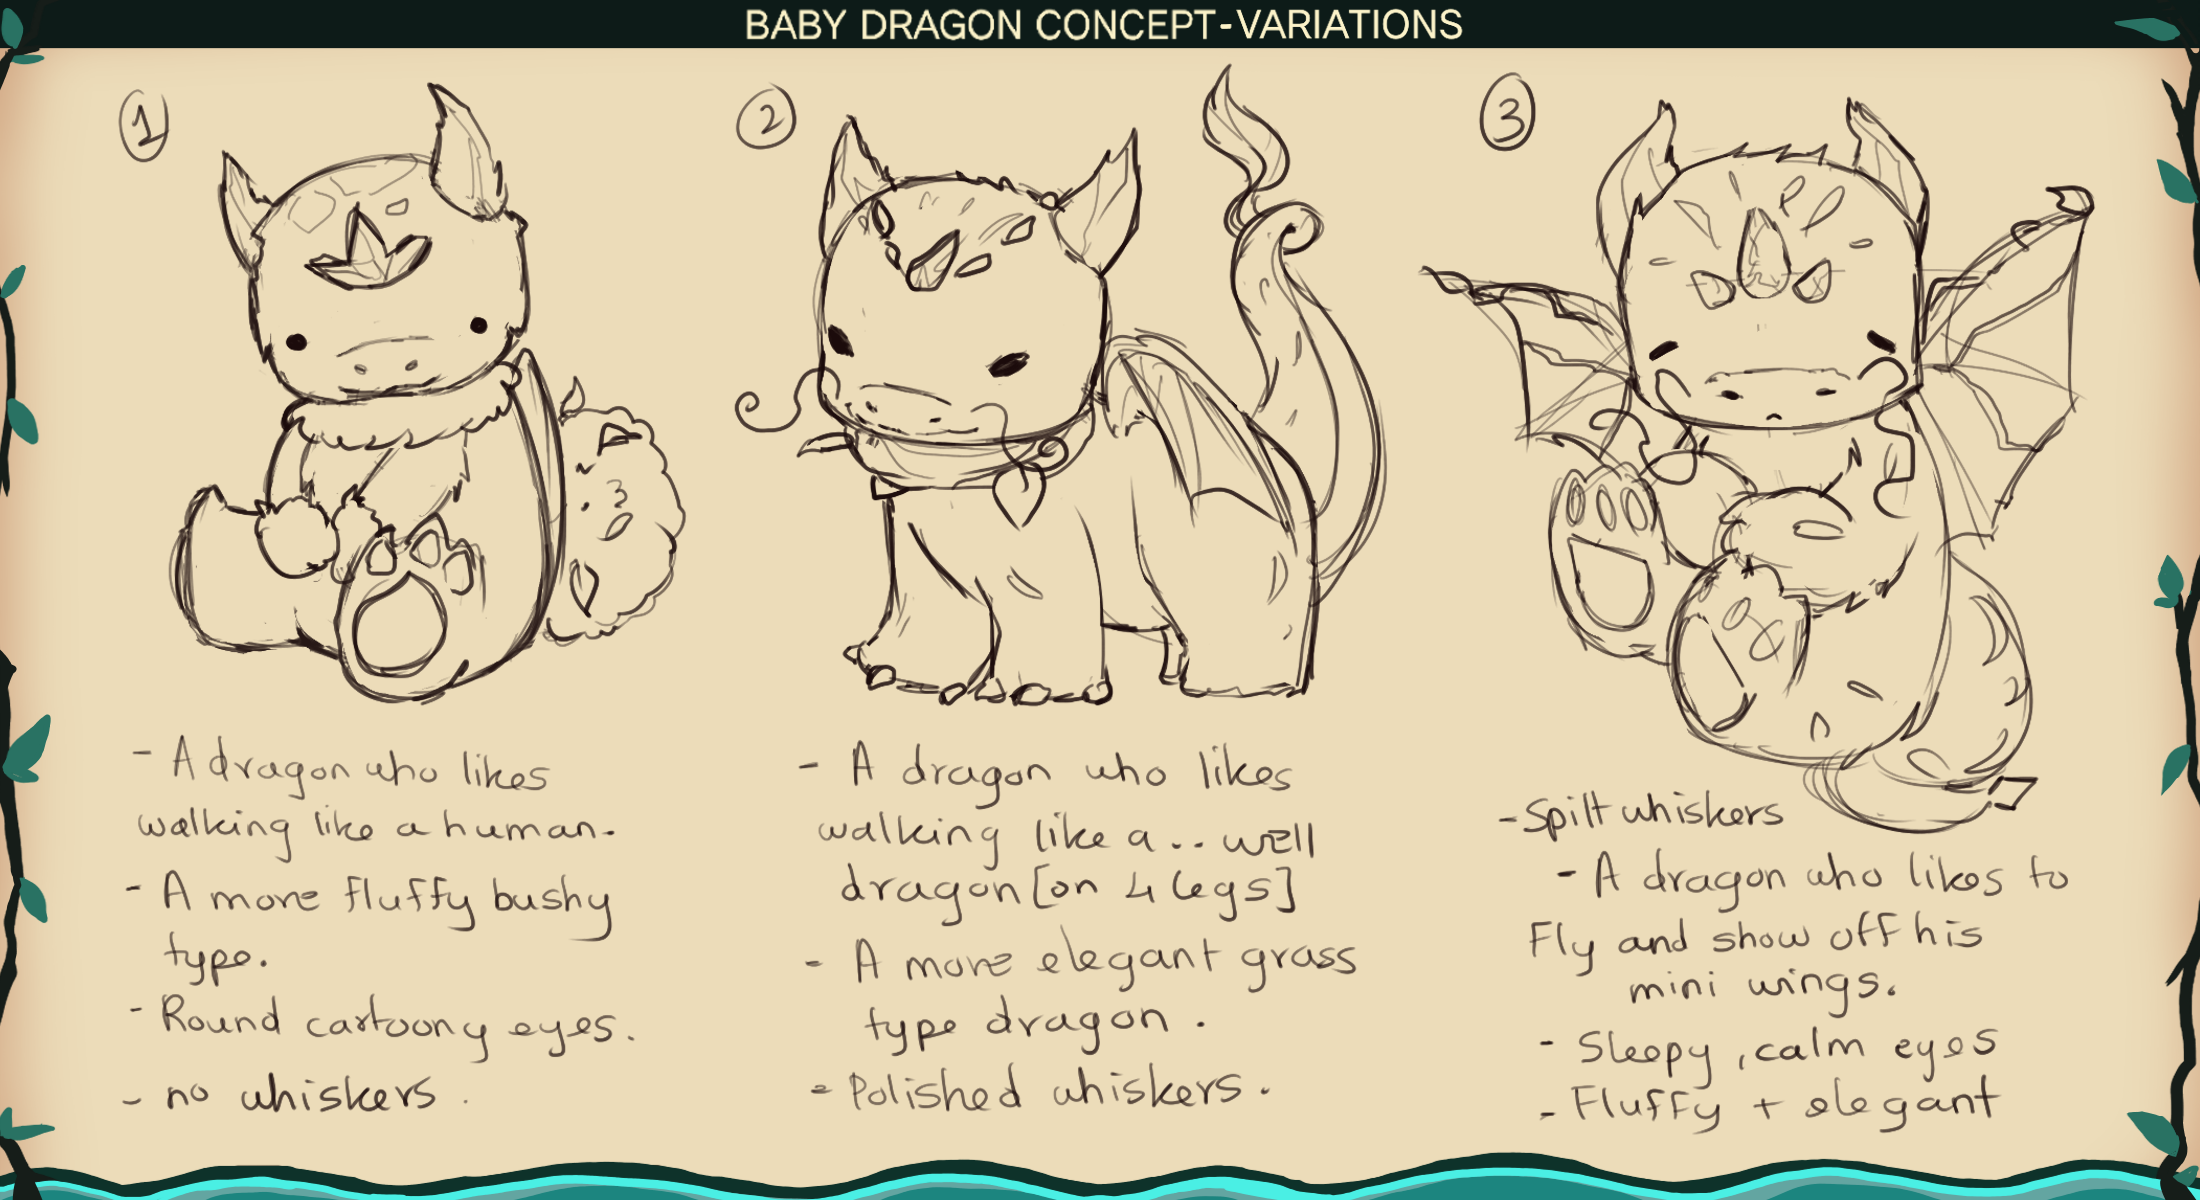 BABY DRAGON CONCEPT-VARIATIONS
1
- A dragon who likes
walking like a human.
- A more fluffy bushy
type.
- Round cartoony eyes.
- no whiskers.
2
- A dragon who likes
walking like a.. well
dragon [on 4 legs]
- A more elegant grass
type dragon.
- Polished whiskers.
3
- Spilt whiskers
- A dragon who likes to
Fly and show off his
mini wings.
- Sleepy, calm eyes
- Fluffy + elegant